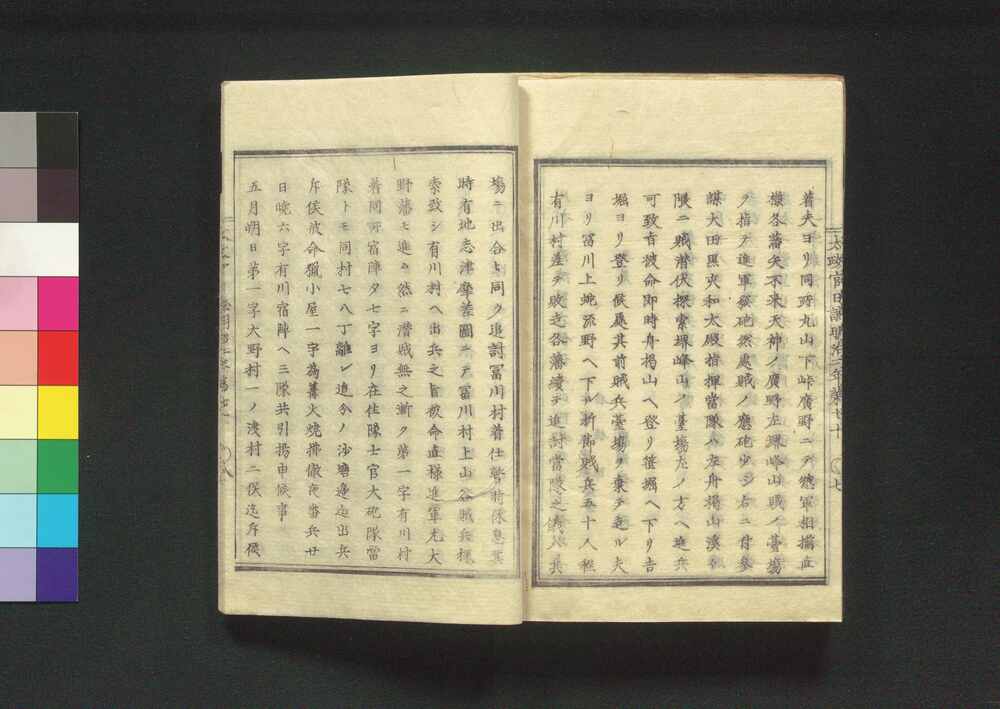 着夫ヨリ同所丸山下峠廣野ニテ惣軍相揃直
様各藩矢不来天神ノ廣野左深峰山賊ノ臺場
ヲ指テ進軍發砲然處賊ノ應砲少シ右ニ付參
謀大田黒夫和太殿指揮當隊ハ左舟揚山溪
隈ニ賊潜伏探索堺峰山ノ臺場左ノ方ヘ進兵
可致旨被命即時舟揚山ヘ登リ笹掘ヘ下リ
堀ヨリ登リ候處其前賊兵臺場ヲ棄テ迯ル夫
ヨリ冨川上蛇流野ヘ下ル折節賊兵五十人程
有川村差テ敗走各藩續テ追討當隊之儀ハ兵
太政官日誌明治二年第七十 七
場ニ出合セ同ク追討冨川村着仕暫時休息其
時有地志津摩差圖ニテ冨川村上山谷賊兵探
索致シ有川村ヘ出兵之旨被命直様進軍尤大
野藩モ進ム然ニ潜賊無之漸ク第一字有川村
着同所宿陣夕七字ヨリ在住隊士官大砲隊當
隊トモ同村七八丁離レ追分ノ沙塘邊迠出兵
斥候被命獵小屋一宇為篝火燒拂徹夜番兵廿
日曉六字有川宿陣ヘ三隊共引揚申候事
五月朔日第一字大野村一ノ渡村ニ候迠斥候